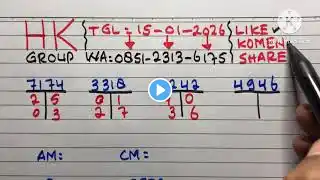 HK
TGL = 15-01-2026
LIKE ✓
KOMEN
GROUP WA: 0851-2313-6175
SHARE
7174 3318 242 4946
2 5 0 1 1 0
0 3 2 7 3 6
AM: CM: